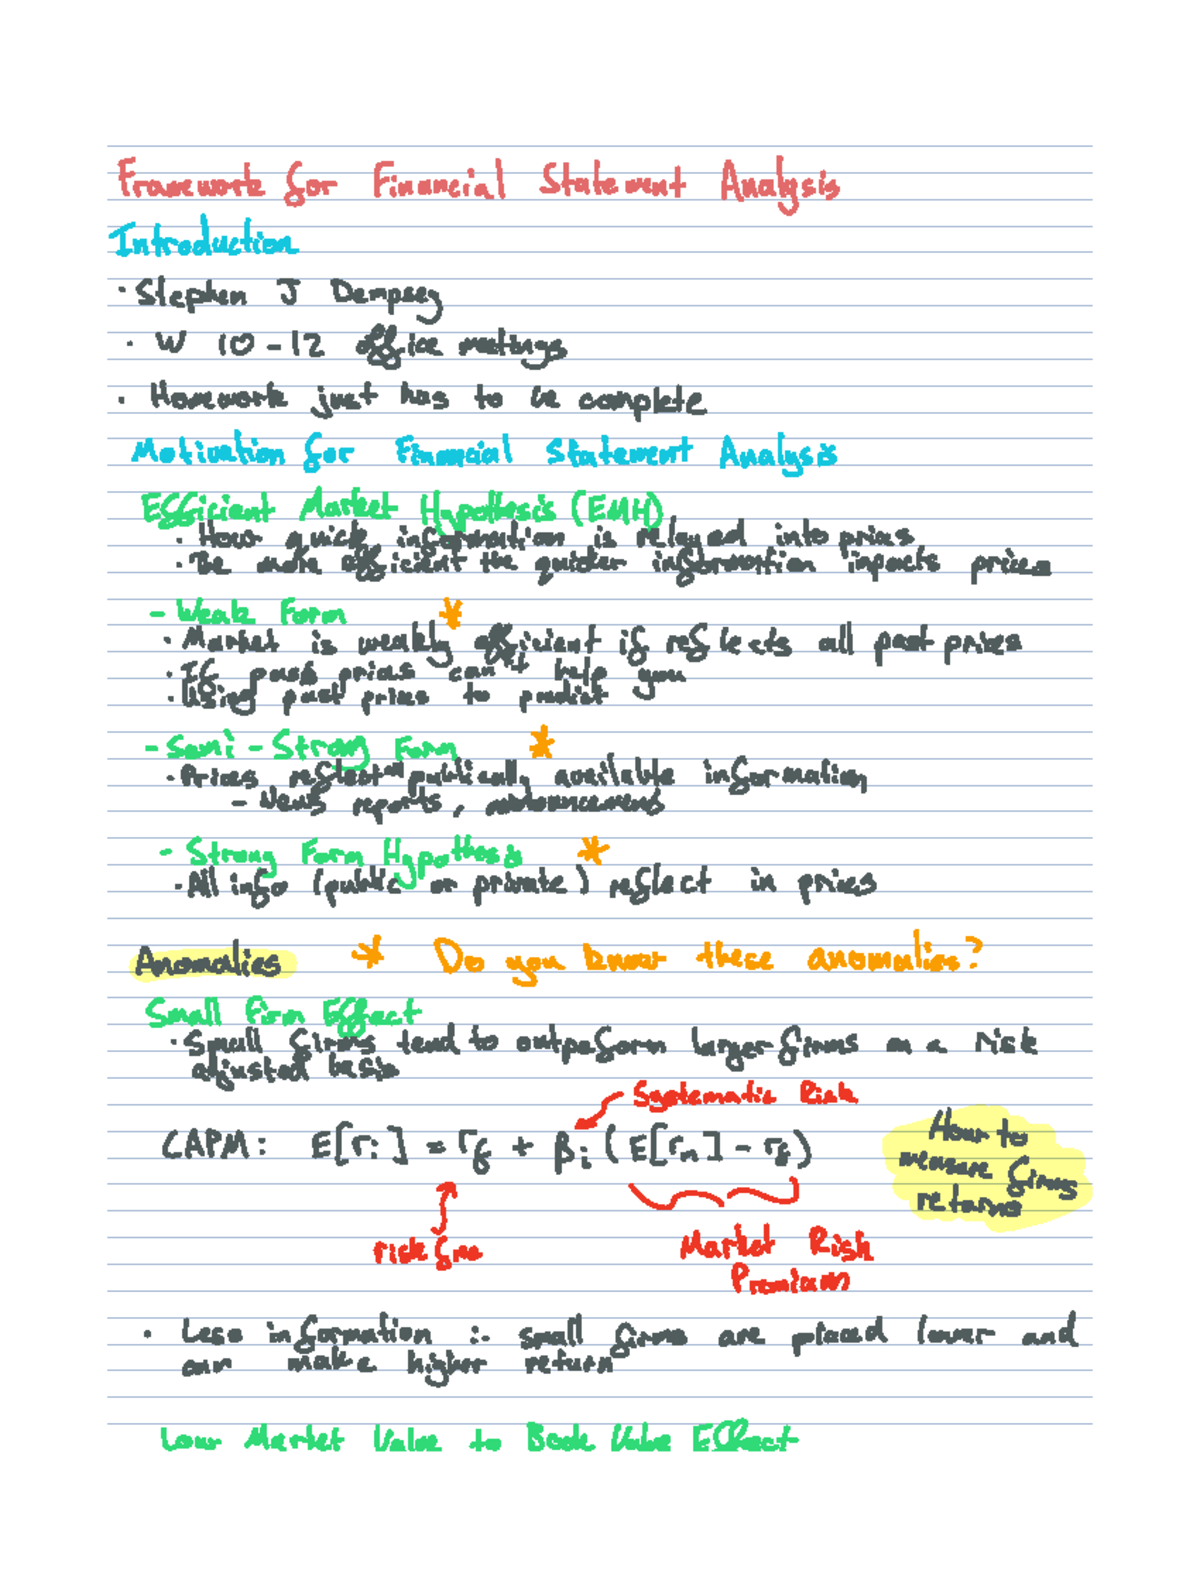 Framework for Financial Statement Analysis
Introduction
· Stephen J Dempsey
· W 10-12 office meetings
· Homework just has to be complete
Motivation for Financial Statement Analysis
Efficient Market Hypothesis (EMH)
· How quick information is relayed into prices
· The more efficient the quicker information impacts prices
- Weak Form *
· Market is weakly efficient if reflects all past prices
· If past prices can't help you
· Using past prices to predict
- Semi-Strong Form *
· Prices reflect all publically available information
- News reports, announcements
- Strong Form Hypothesis *
· All info (public or private) reflect in prices
Anomalies * Do you know these anomalies?
Small Firm Effect
· Small firms tend to outpeform larger firms on a risk
adjusted basis
Systematic Risk
CAPM: E[ri] = rf + βi (E[rm] - rf)
How to
measure firms
returns
risk free
Market Risk
Premium
· Less information :- small firms are placed lower and
can make higher return
Low Market Value to Book Value Effect